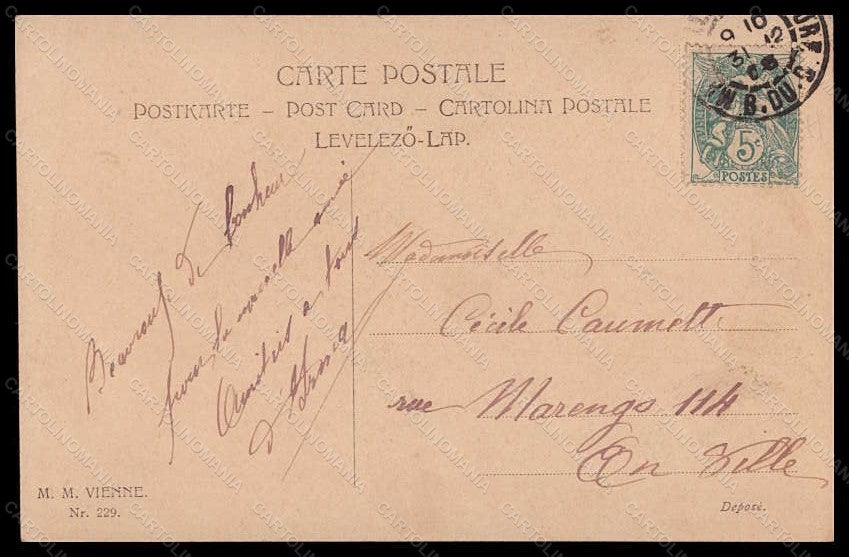 CARTE POSTALE
POSTKARTE – POST CARD – CARTOLINA POSTALE
LEVELEZŐ-LAP.
Beaucoup de bonheur
pour la nouvelle année
Amitiés à tous
Mademoiselle
Cécile Caumett
rue Marengo 114
En Ville
M. M. VIENNE.
Nr. 229.
Déposé.
5c
POSTES
9 10
31 12
06
B. DU
CARTOLINOMANIA